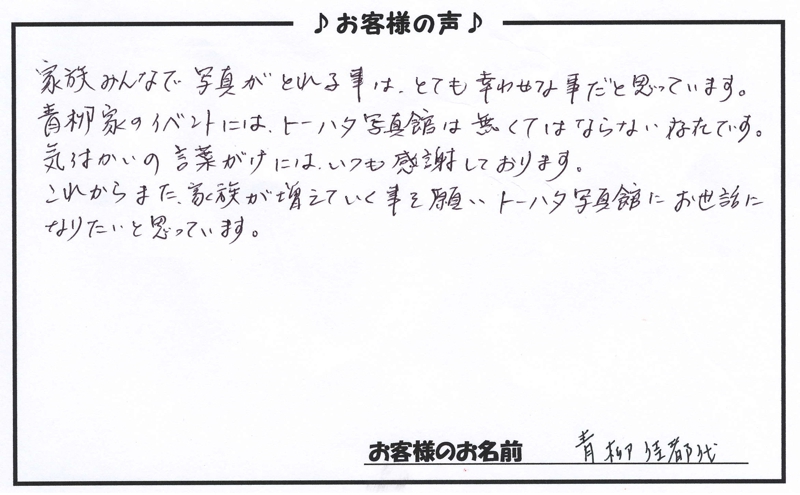 ♪お客様の声♪
家族みんなで写真がとれる事は、とても幸わせな事だと思っています。
青柳家のイベントには、トーハタ写真館は無くてはならない存在です。
気はかいの言葉がけには、いつも感謝しております。
これからまた、家族が増えていく事を願いトーハタ写真館にお世話に
なりたいと思っています。
お客様のお名前 青柳佳都代